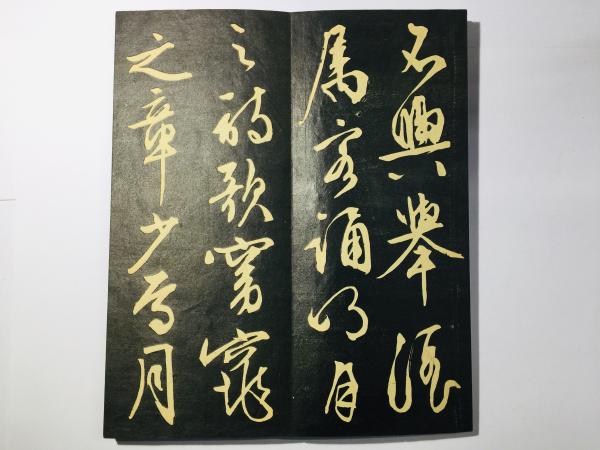 不興舉酒
属客誦明月
之詩歌窈窕
之章少焉月